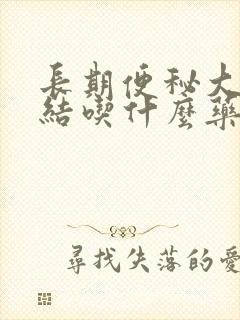 長期便秘大
結喫什麼藥
尋找失落的愛